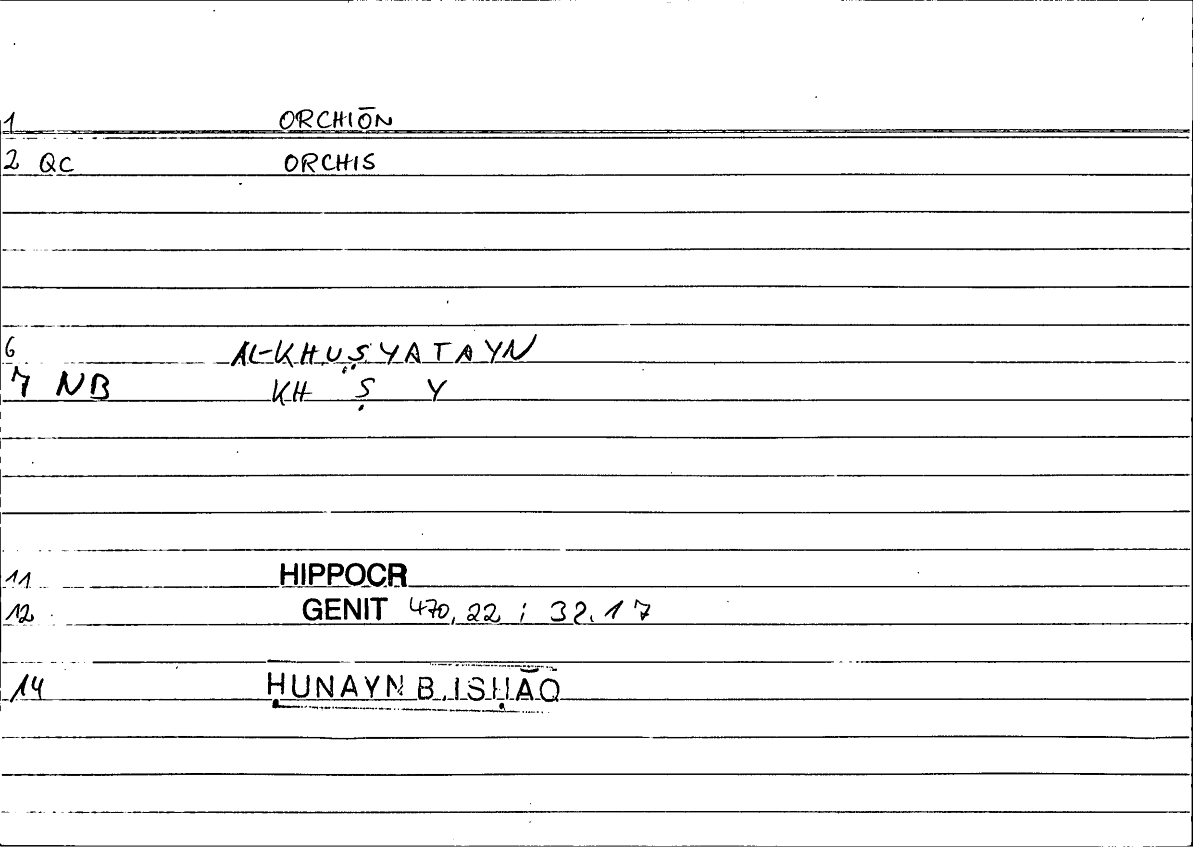 1 ORCHIŌN
2 QC ORCHIS
6 AL-KHUṢYATAYN
7 NB KH Ṣ Y
11 HIPPOCR
12 GENIT 470, 22 ; 32.17
14 ḤUNAYN B. ISḤĀQ